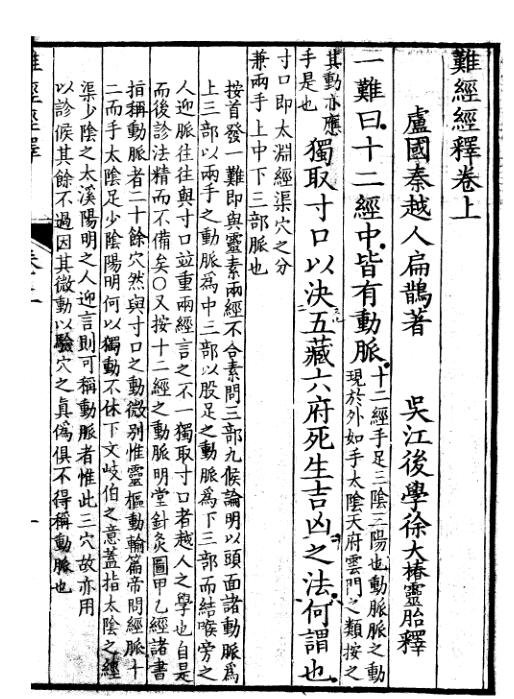 難經經釋卷上
盧國秦越人扁鵲著　吳江後學徐大椿靈胎釋
一難曰十二經中皆有動脈
十二經手足三陰三陽也動脈脈之動
現於外如手太陰天府雲門之類按之
其動亦應
手是也
獨取寸口以決五藏六府死生吉凶之法何謂也
寸口即太淵經渠穴之分
兼兩手上中下三部脈也
按首發一難即與靈素兩經不合素問三部九候論明以頭面諸動脈爲
上三部以兩手之動脈爲中三部以股足之動脈爲下三部而結喉旁之
人迎脈往往與寸口並重兩經言之不一獨取寸口者越人之學也自是
而後診法精而不備矣〇又按十二經之動脈明堂針灸圖甲乙經諸書
指稱動脈者二十餘穴然與寸口之動微別惟靈樞動輸篇帝問經脈十
二而手太陰足少陰陽明何以獨動不休下文岐伯之意蓋指太陰之經
渠少陰之太溪陽明之人迎言則可稱動脈者惟此三穴故亦用
以診候其餘不過因其微動以驗穴之眞僞俱不得稱動脈也
難經經釋